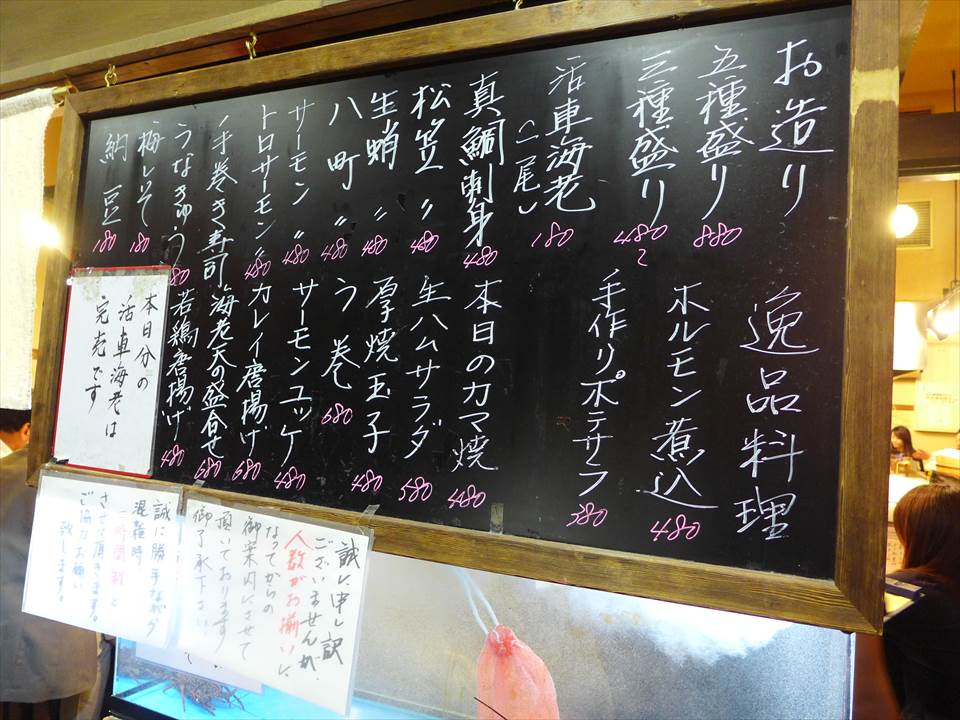 お造り
五種盛り 880
三種盛り 480
活車海老
(一尾) 180
真鯛刺身 480
松笠 〃 480
生蛸 〃 480
八町 〃 480
サーモン 〃 480
トロサーモン〃 480
手巻き寿司
うなきゅう 180
梅しそ 180
納豆 180
逸品料理
ホルモン煮込 480
手作りポテサラ 380
本日のカマ焼 480
生ハムサラダ 580
厚焼玉子 480
う巻 680
サーモンユッケ 480
カレイ唐揚げ 680
海老天の盛合せ 680
若鶏唐揚げ 480
本日分の
活車海老は
完売です
誠に申し訳
ございませんが、
人数がお揃いに
なってからの
御案内とさせて
頂いております
御了承下さい
誠に勝手ながら
混雑時
二時間制と
させて頂きます。
ご協力お願い
致します。